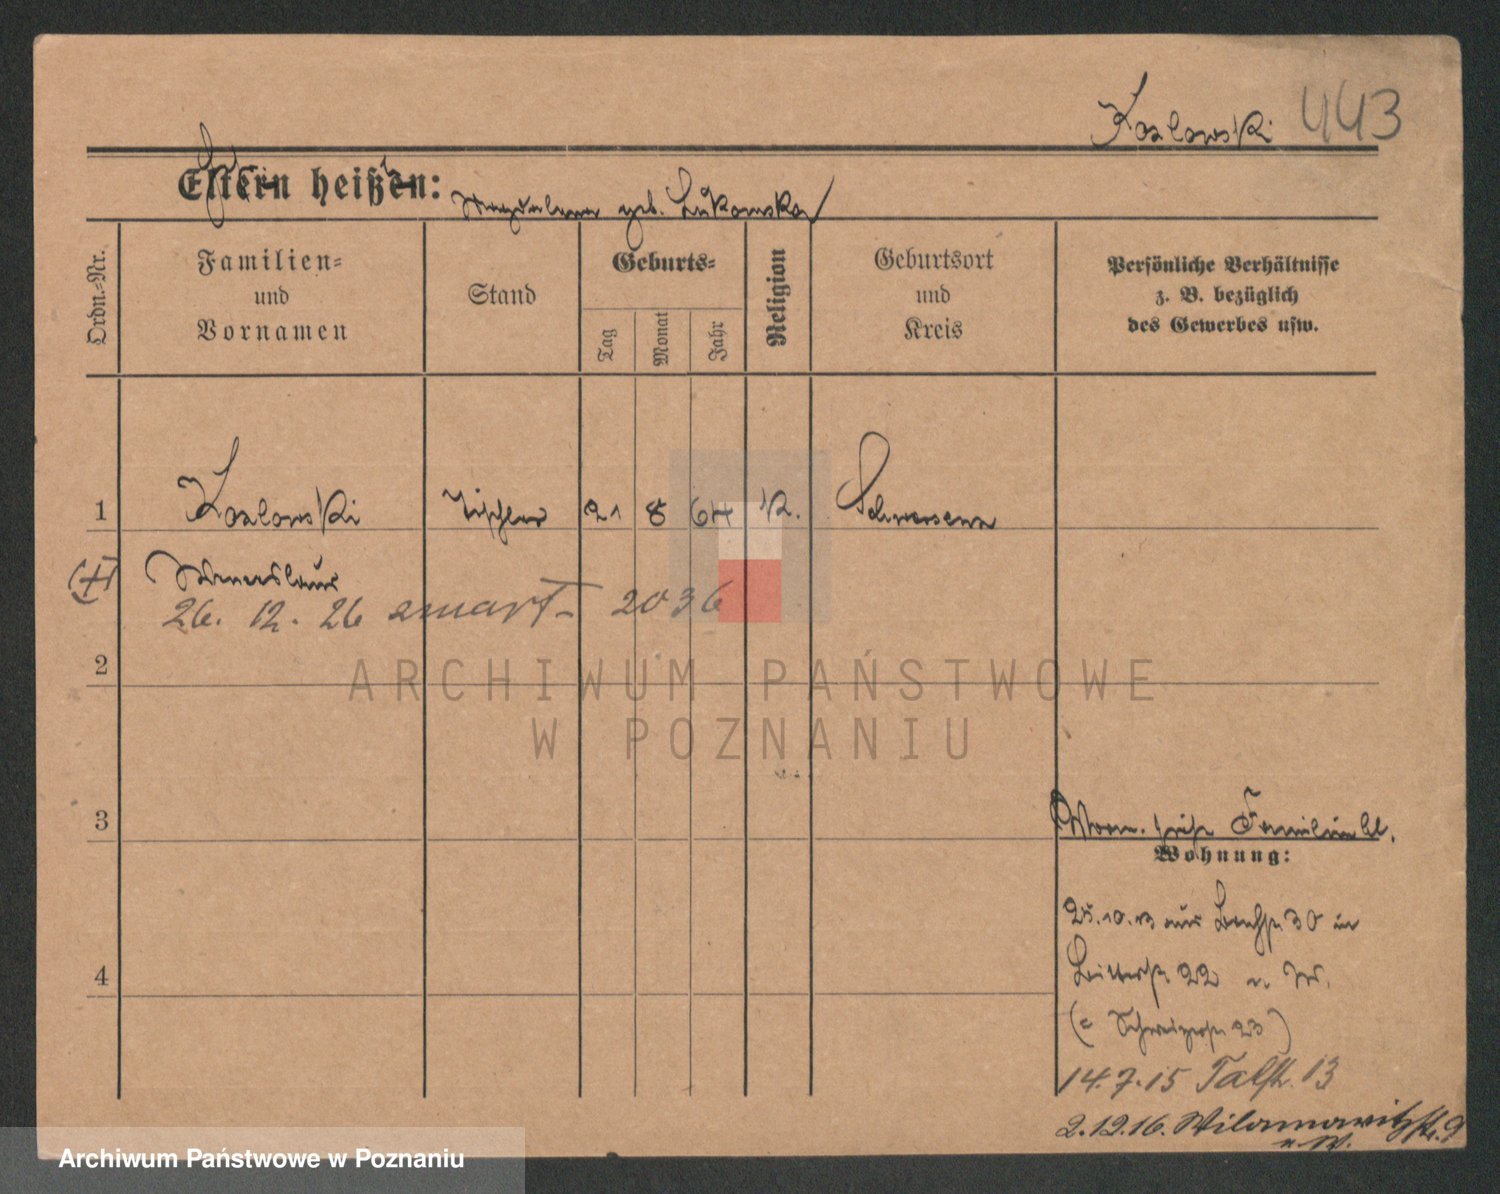 Kozlowski 443
Eltern heißen:
Magdalena geb. Lukowska
Ordn.-Nr.
Familien-
und
Vornamen
Stand
Geburts-
Tag
Monat
Jahr
Religion
Geburtsort
und
Kreis
Persönliche Verhältnisse
z. B. bezüglich
des Gewerbes usw.
1 Kozlowski Tischler 21 8 64 K. Schwersenz
(+)
26. 12. 26 zmarł 2036
2
ARCHIWUM PAŃSTWOWE
W POZNANIU
3
siehe Familienbl.
Wohnung:
25.10.13 aus 30 in
Ritterstr. 22 v. W.
(= Schweizerstr. 23)
4
14.7.15 Talstr. 13
2.12.16. Wilamowitzstr. 9
v. W.
Archiwum Państwowe w Poznaniu